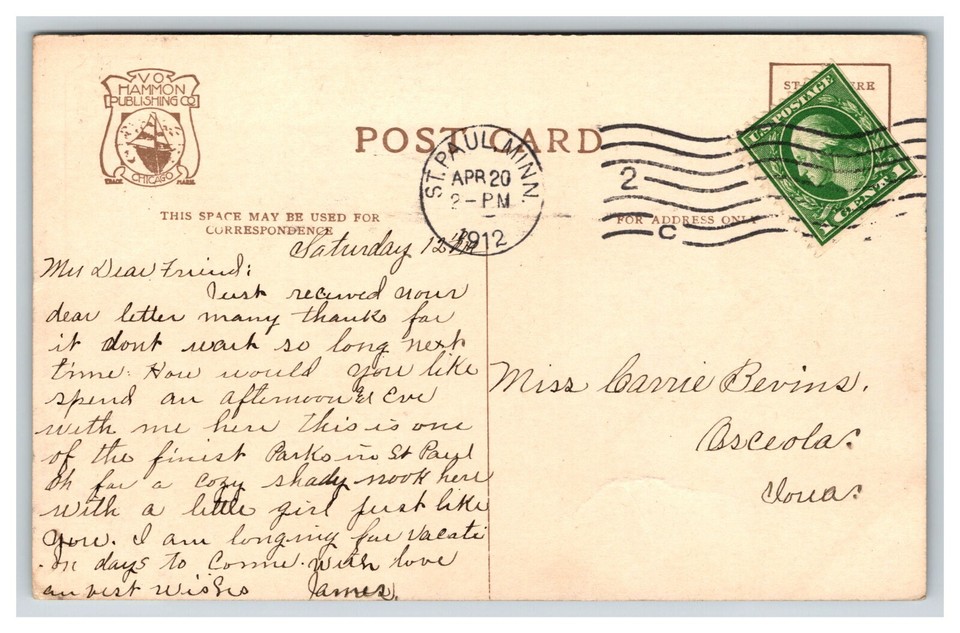 V.O.
HAMMON
PUBLISHING CO.
CHICAGO
TRADE MARK
POST CARD
ST. PAUL, MINN.
APR 20
2-PM
1912
2
C
U.S. POSTAGE
1 CENT 1
THIS SPACE MAY BE USED FOR
CORRESPONDENCE
FOR ADDRESS ONLY
Saturday 12
My Dear Friend:
Just received your
dear letter many thanks for
it dont wait so long next
time. How would you like
spend an afternoon Er Eve
with me here This is one
of the finist Parks in St Paul
Oh for a cozy shady nook here
with a little girl just like
you. I am longing for vacati
-on days to come. with love
an vest wishes James.
Miss Carrie Bevins.
Osceola.
Iowa.